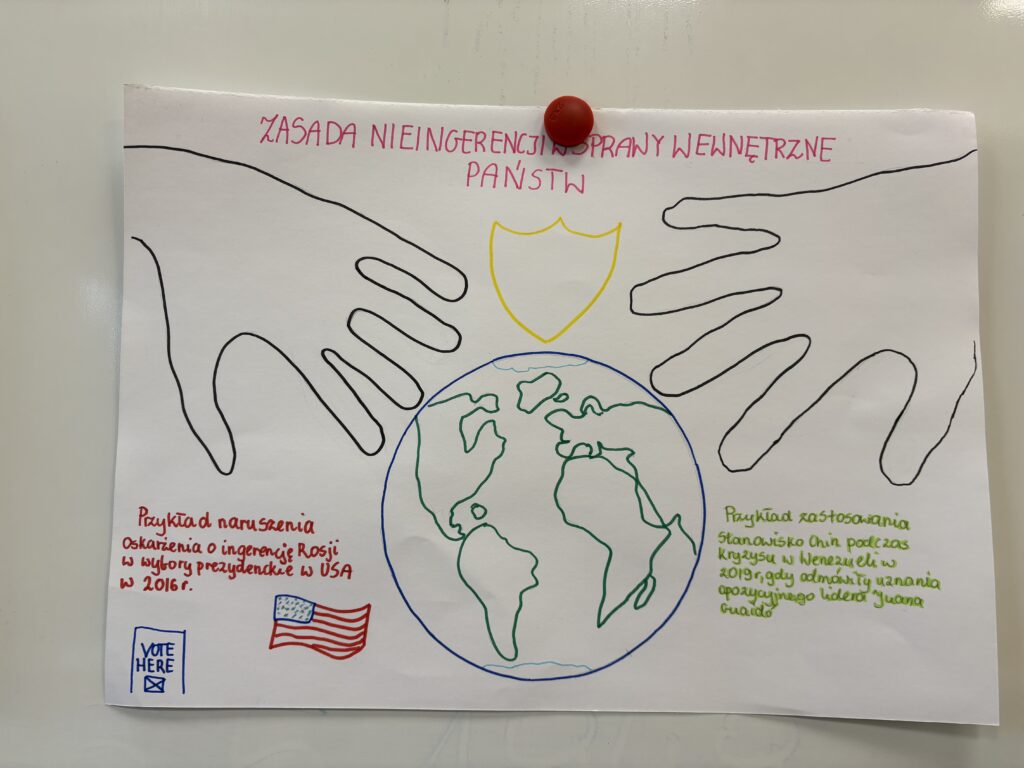 ZASADA NIEINGERENCJI W SPRAWY WEWNĘTRZNE
PAŃSTW
Przykład naruszenia
Oskarżenia o ingerencję Rosji
w wybory prezydenckie w USA
w 2016r.
VOTE
HERE
Przykład zastosowania
Stanowisko Chin podczas
kryzysu w Wenezueli w
2019r, gdy odmówiły uznania
opozycyjnego lidera Juana
Guaidó